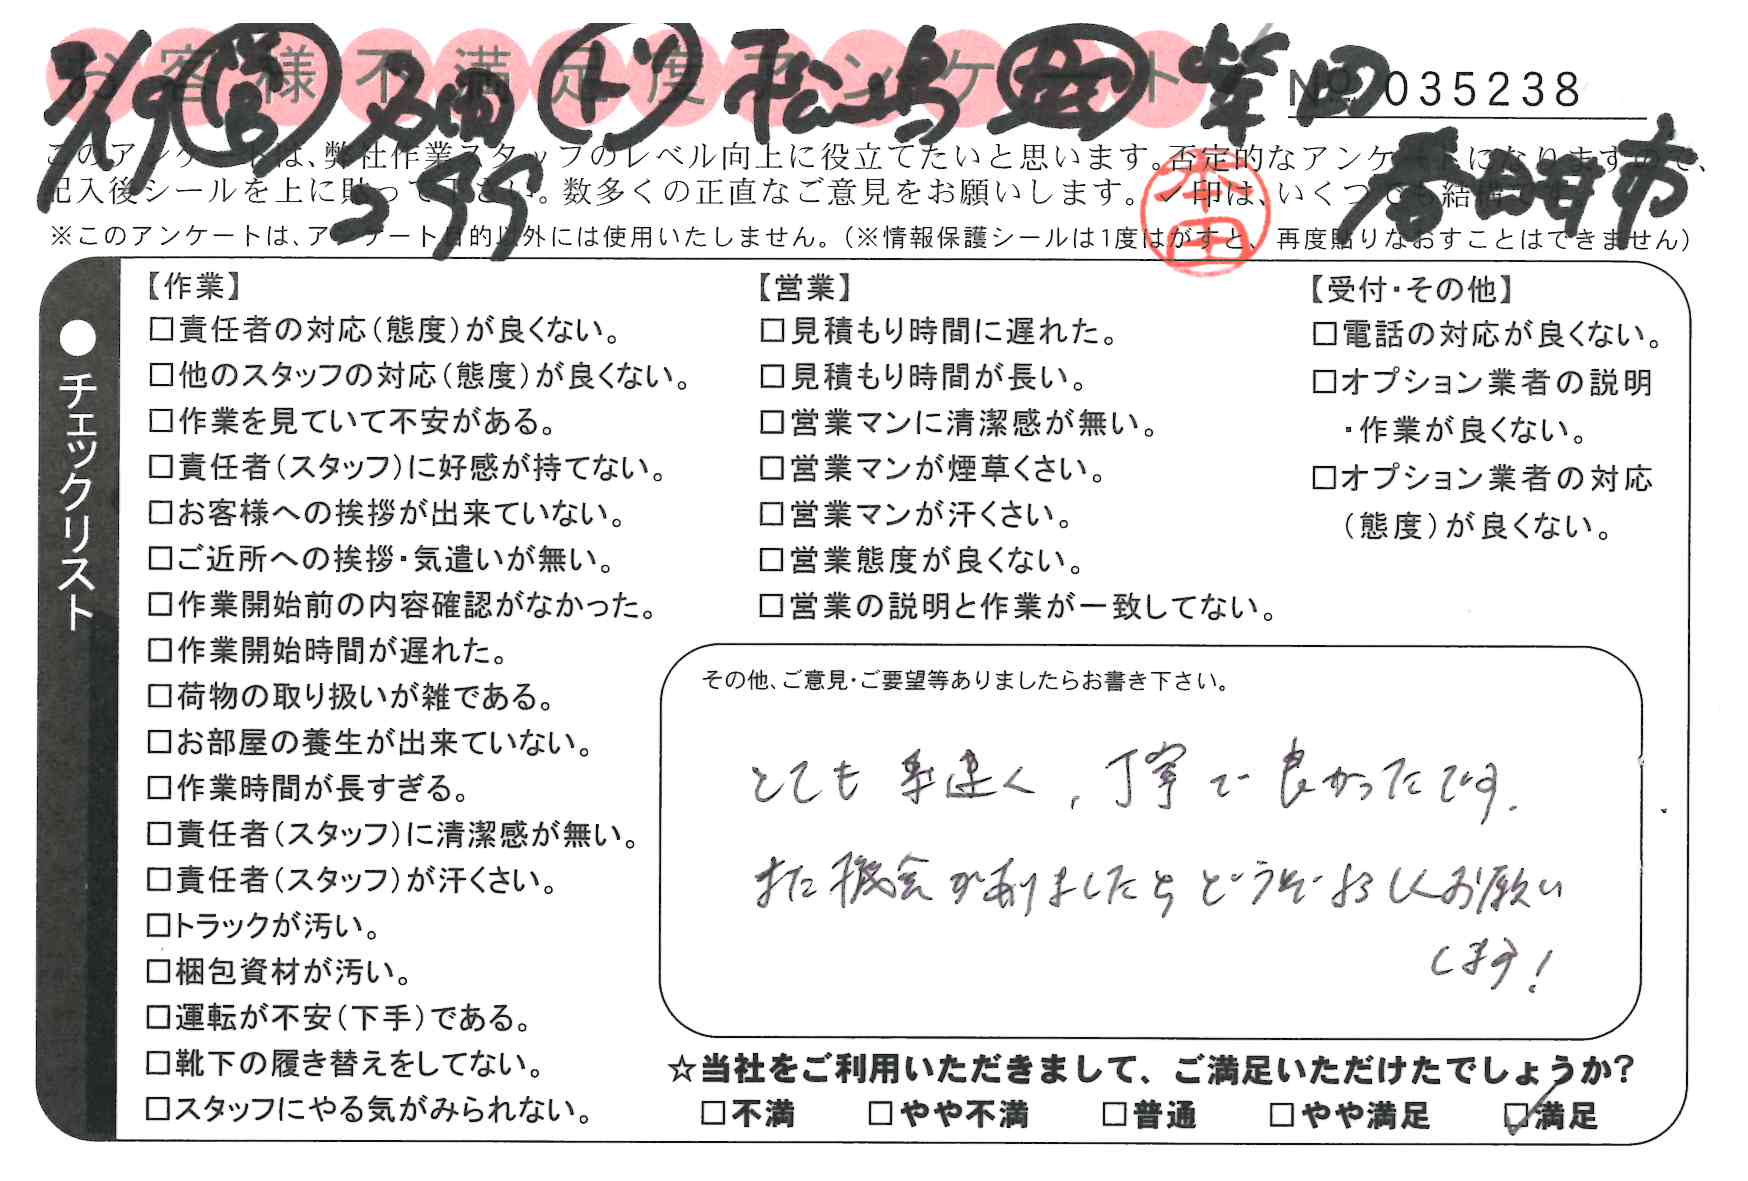 お客様不満足度アンケート
No. 035238
2/19 営 名南 ト 松嶋 柴田
299 春日井市
このアンケートは、弊社作業スタッフのレベル向上に役立てたいと思います。否定的なアンケートになりますので、
記入後シールを上に貼って下さい。数多くの正直なご意見をお願いします。レ印は、いくつでも結構です。
※このアンケートは、アンケート目的以外には使用いたしません。(※情報保護シールは1度はがすと、再度貼りなおすことはできません)
本田
●チェックリスト
【作業】
□責任者の対応(態度)が良くない。
□他のスタッフの対応(態度)が良くない。
□作業を見ていて不安がある。
□責任者(スタッフ)に好感が持てない。
□お客様への挨拶が出来ていない。
□ご近所への挨拶・気遣いが無い。
□作業開始前の内容確認がなかった。
□作業開始時間が遅れた。
□荷物の取り扱いが雑である。
□お部屋の養生が出来ていない。
□作業時間が長すぎる。
□責任者(スタッフ)に清潔感が無い。
□責任者(スタッフ)が汗くさい。
□トラックが汚い。
□梱包資材が汚い。
□運転が不安(下手)である。
□靴下の履き替えをしてない。
□スタッフにやる気がみられない。
【営業】
□見積もり時間に遅れた。
□見積もり時間が長い。
□営業マンに清潔感が無い。
□営業マンが煙草くさい。
□営業マンが汗くさい。
□営業態度が良くない。
□営業の説明と作業が一致してない。
【受付・その他】
□電話の対応が良くない。
□オプション業者の説明
・作業が良くない。
□オプション業者の対応
(態度)が良くない。
その他、ご意見・ご要望等ありましたらお書き下さい。
とても手速く、丁寧で良かったです.
また機会がありましたらどうぞよろしくお願い
します!
☆当社をご利用いただきまして、ご満足いただけたでしょうか?
□不満 □やや不満 □普通 □やや満足 ☑満足